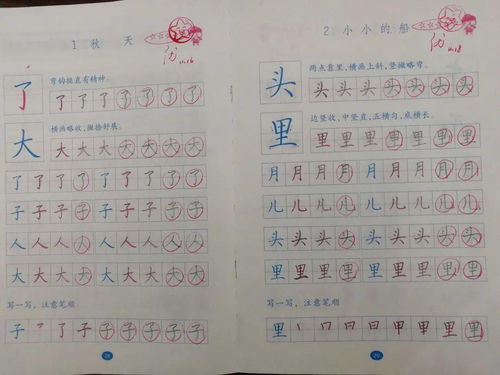 1 秋 天
优 11.16
了 弯钩挺直有精神。
了 了 了 了 了 了 了
大 横画略收,撇捺舒展。
大 大 大 大 大 大 大
了 了 了 了 了 了 了 了 了
子 子 子 子 子 子 子 子 子
人 人 人 人 人 人 人 人 人
大 大 大 大 大 大 大 大 大
写一写,注意笔顺
子 了 子 子 子 子 子
28
2 小 小 的 船
优 11.18
头 两点靠里,横画上斜,竖撇略弯。
头 头 头 头 头 头 头
里 边竖收,中竖直,五横匀,底横长。
里 里 里 里 里 里 里
月 月 月 月 月 月 月 月 月
儿 儿 儿 儿 儿 儿 儿 儿 儿
头 头 头 头 头 头 头 头 头
里 里 里 里 里 里 里 里 里
写一写,注意笔顺
里 丨 口 曰 日 甲 甲 里 里
29